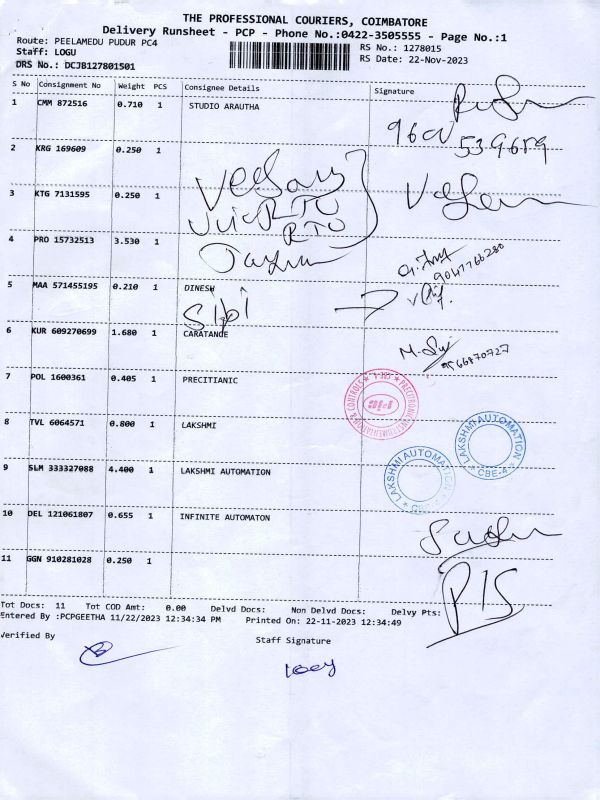 THE PROFESSIONAL COURIERS, COIMBATORE
Delivery Runsheet - PCP - Phone No.:0422-3505555 - Page No.:1
Route: PEELAMEDU PUDUR PC4
Staff: LOGU
DRS No.: DCJB127801501
RS No.: 1278015
RS Date: 22-Nov-2023
S No Consignment No Weight PCS Consignee Details Signature
1 CMM 872516 0.710 1 STUDIO ARAUTHA
2 KRG 169609 0.250 1
3 KTG 7131595 0.250 1
RTO
RTO
4 PRO 15732513 3.530 1
9047766280
5 MAA 571455195 0.210 1 DINESH
Sibi
6 KUR 609270699 1.680 1 CARATANCE
9566870727
7 POL 1600361 0.405 1 PRECITIANIC
8 TVL 6064571 0.800 1 LAKSHMI
LAKSHMI AUTOMATION
CBE-
9 SLM 333327088 4.400 1 LAKSHMI AUTOMATION
LAKSHMI AUTOMATION
10 DEL 121061807 0.655 1 INFINITE AUTOMATON
11 GGN 910281028 0.250 1
Tot Docs: 11 Tot COD Amt: 0.00 Delvd Docs: Non Delvd Docs: Delvy Pts:
Entered By :PCPGEETHA 11/22/2023 12:34:34 PM Printed On: 22-11-2023 12:34:49
Verified By
Staff Signature